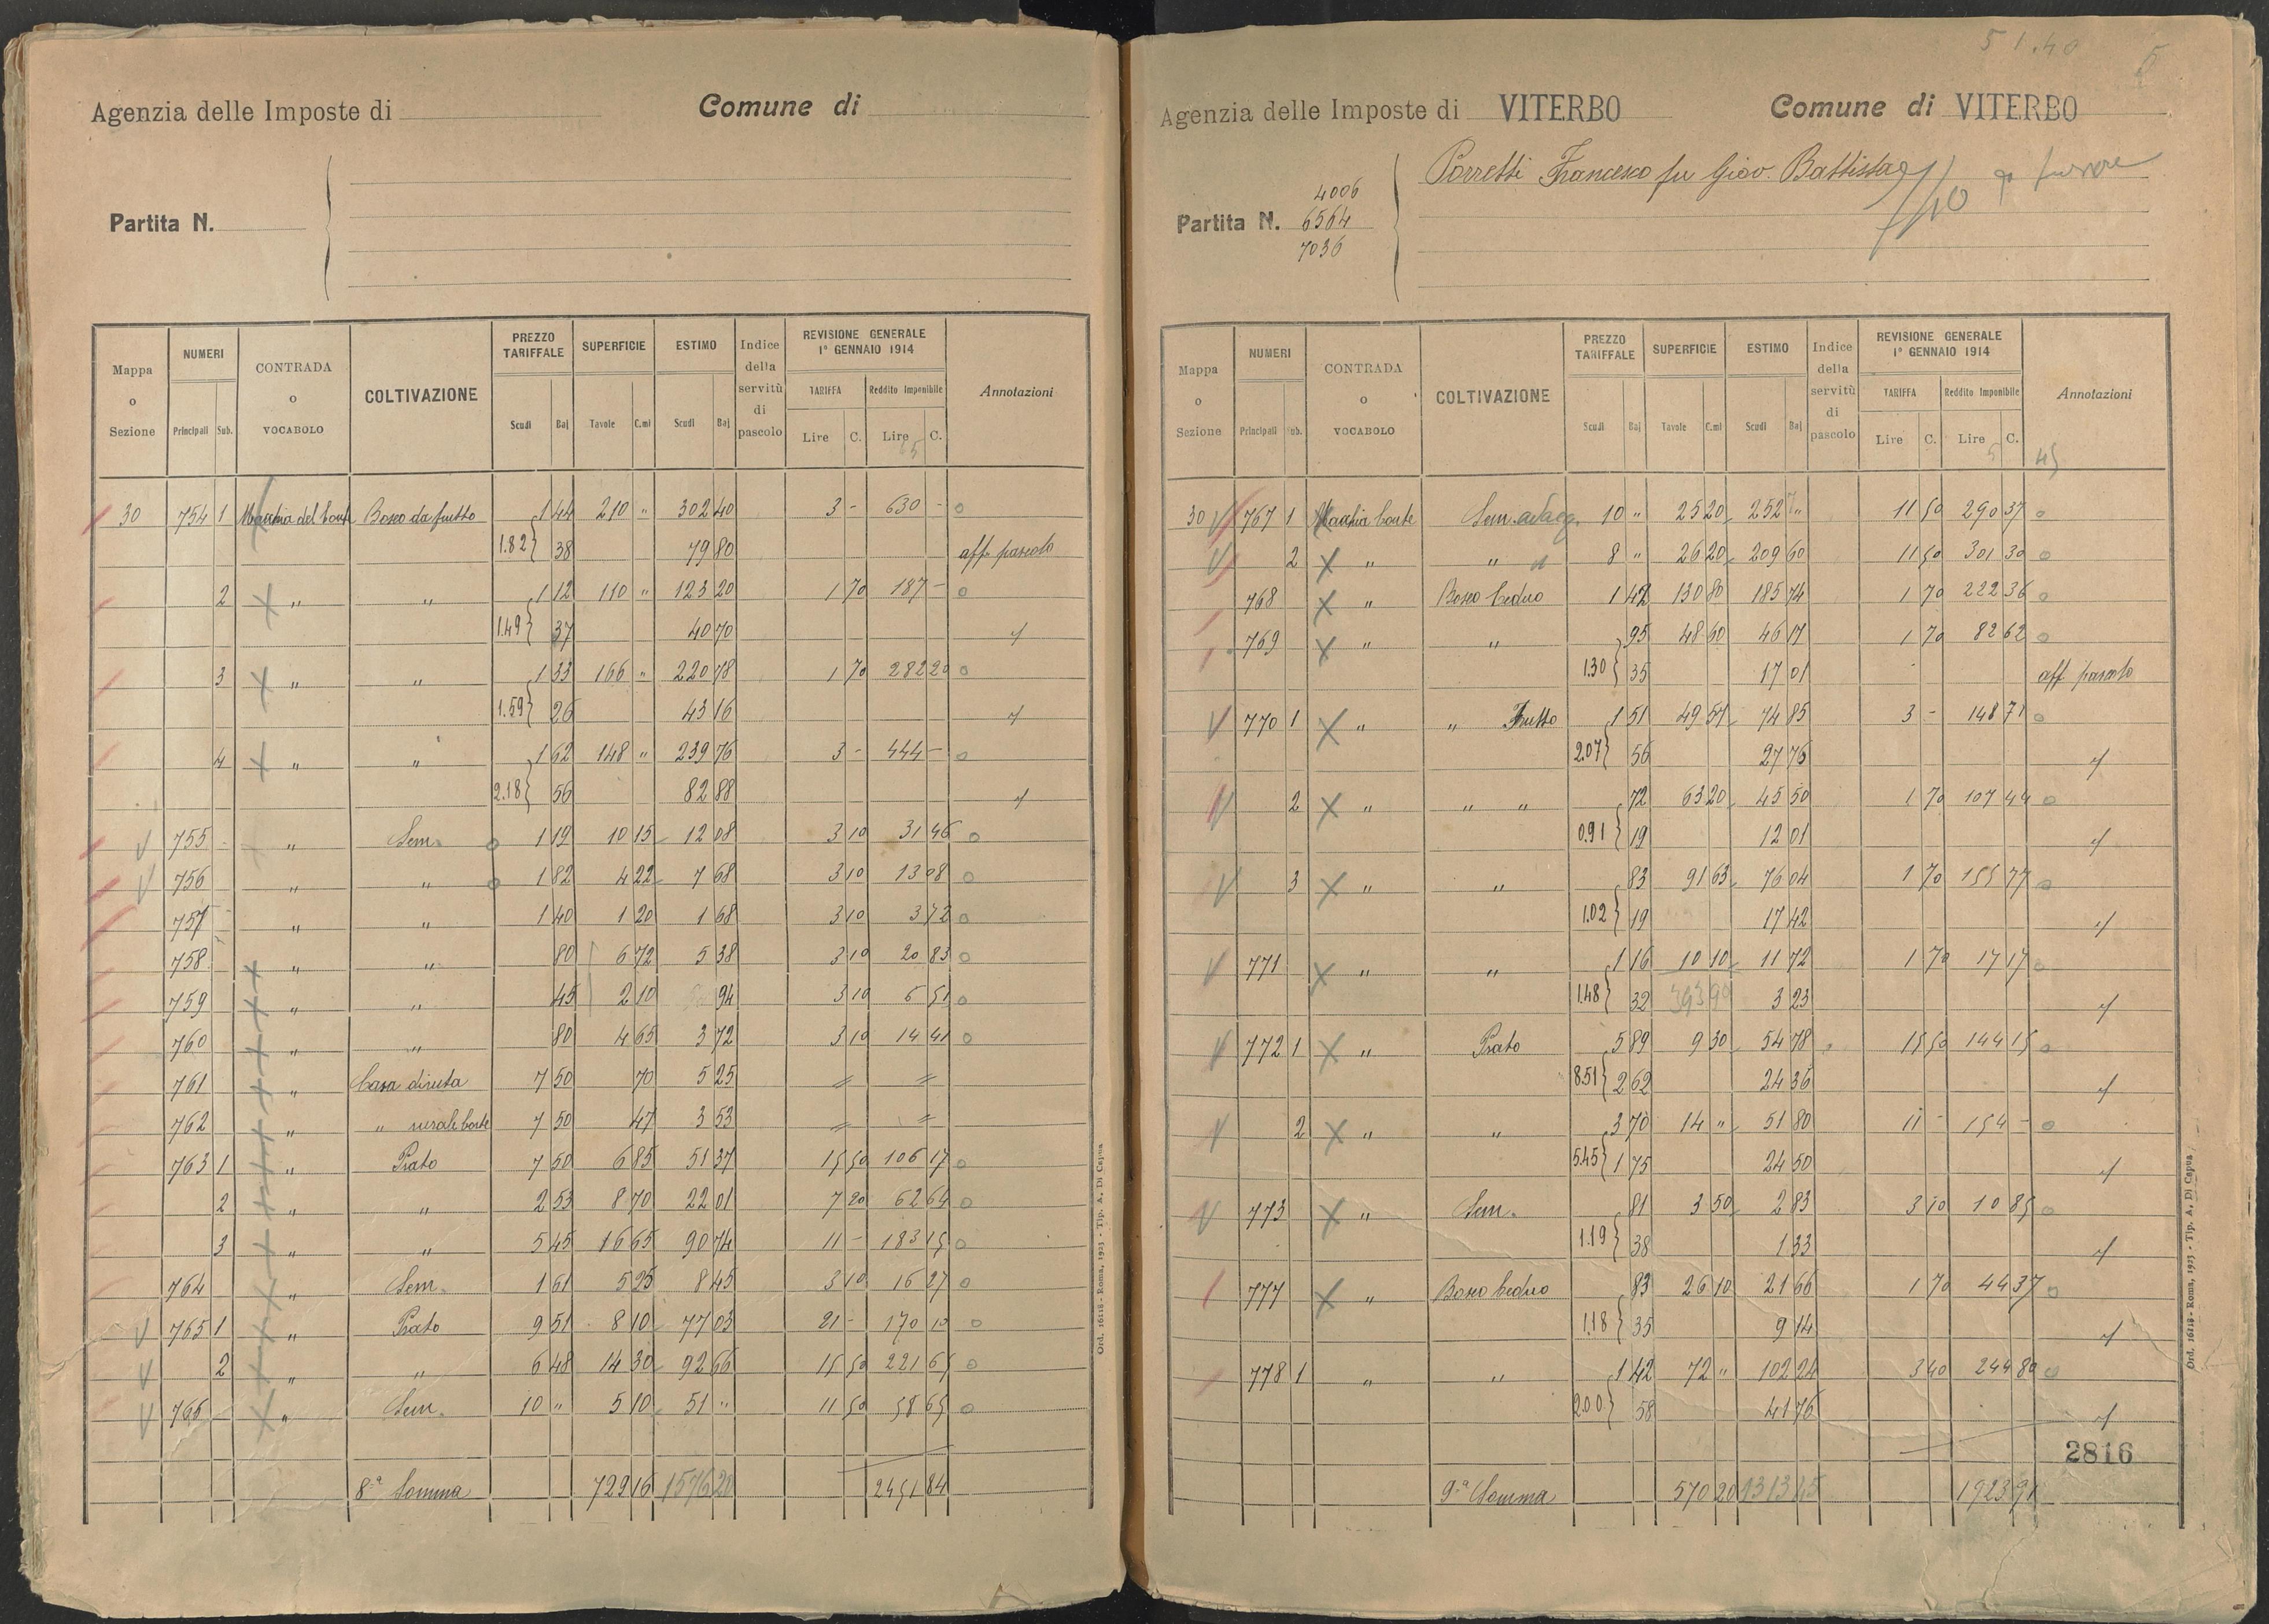 Agenzia delle Imposte di
Comune di
Partita N.
Mappa o Sezione
NUMERI
Principali Sub.
CONTRADA o VOCABOLO
COLTIVAZIONE
PREZZO TARIFFALE
Scudi Baj
SUPERFICIE
Tavole C.mi
ESTIMO
Scudi Baj
Indice della servitù di pascolo
REVISIONE GENERALE 1º GENNAIO 1914
TARIFFA
Lire C.
Reddito Imponibile
Lire C.
Annotazioni
30 754 1 Macchia del Conte Bosco da frutto 1 44 210 " 302 40 3 - 630 -
1.82 38 79 80 aff. pascolo
2 " " 1 12 110 " 123 20 1 70 187 -
1.49 37 40 70 "
3 " " 1 33 166 " 220 78 1 70 282 20
1.59 26 43 16 "
4 " " 1 62 148 " 239 76 3 - 444 -
2.18 56 82 88 "
755 " Sem. 1 19 10 15 12 08 3 10 31 46
756 " " 1 82 4 22 7 68 3 10 13 08
757 " " 1 40 1 20 1 68 3 10 3 72
758 " " 80 6 72 5 38 3 10 20 83
759 " " 45 2 10 94 3 10 6 51
760 " " 80 4 65 3 72 3 10 14 41
761 " Casa diruta 7 50 70 5 25 = =
762 " " rurale 7 50 47 3 53 = =
763 1 " Prato 7 50 6 85 51 37 15 50 106 17
2 " " 2 53 8 70 22 01 7 20 62 64
3 " " 5 45 16 65 90 74 11 - 183 15
764 " Sem. 1 61 5 25 8 45 3 10 16 27
765 1 " Prato 9 51 8 10 77 03 21 - 170 10
2 " " 6 48 14 30 92 66 15 50 221 65
766 " Sem. 10 " 5 10 51 " 11 50 58 65
8ª Somma 729 16 1576 20 2451 84
Ord. 16118 - Roma, 1923 - Tip. A. Di Capua
51.40
5
Agenzia delle Imposte di VITERBO
Comune di VITERBO
Porretti Francesco fu Giov. Battista
4006
Partita N. 6564
7036
Mappa o Sezione
NUMERI
Principali Sub.
CONTRADA o VOCABOLO
COLTIVAZIONE
PREZZO TARIFFALE
Scudi Baj
SUPERFICIE
Tavole C.mi
ESTIMO
Scudi Baj
Indice della servitù di pascolo
REVISIONE GENERALE 1º GENNAIO 1914
TARIFFA
Lire C.
Reddito Imponibile
Lire C.
Annotazioni
45
30 767 1 Macchia Conte Sem. adacq. 10 " 25 20 252 " 11 50 290 37
2 " " 8 " 26 20 209 60 11 50 301 30
768 " Bosco Ceduo 1 42 130 80 185 74 1 70 222 36
769 " " 95 48 60 46 17 1 70 82 62
1.30 35 17 01 aff. pascolo
770 1 " " Frutto 1 51 49 57 74 85 3 - 148 71
2.07 56 27 76 "
2 " " " 72 63 20 45 50 1 70 107 44
0.91 19 12 01 "
3 " " 83 91 63 76 04 1 70 155 77
1.02 19 17 42 "
771 " " 1 16 10 10 11 72 1 70 17 17
1.48 32 393 90 3 23 "
772 1 " Prato 5 89 9 30 54 78 15 50 144 15
8.51 2 62 24 36 "
2 " " 3 70 14 " 51 80 11 - 154 -
5.45 1 75 24 50 "
773 " Sem. 81 3 50 2 83 3 10 10 85
1.19 38 1 33 "
777 " Bosco Ceduo 83 26 10 21 66 1 70 44 37
1.18 35 9 14 "
778 1 " " 1 42 72 " 102 24 3 40 244 80
2.00 58 41 76 "
2816
9ª Somma 570 20 1313 25 1923 91
Ord. 16118 - Roma, 1923 - Tip. A. Di Capua